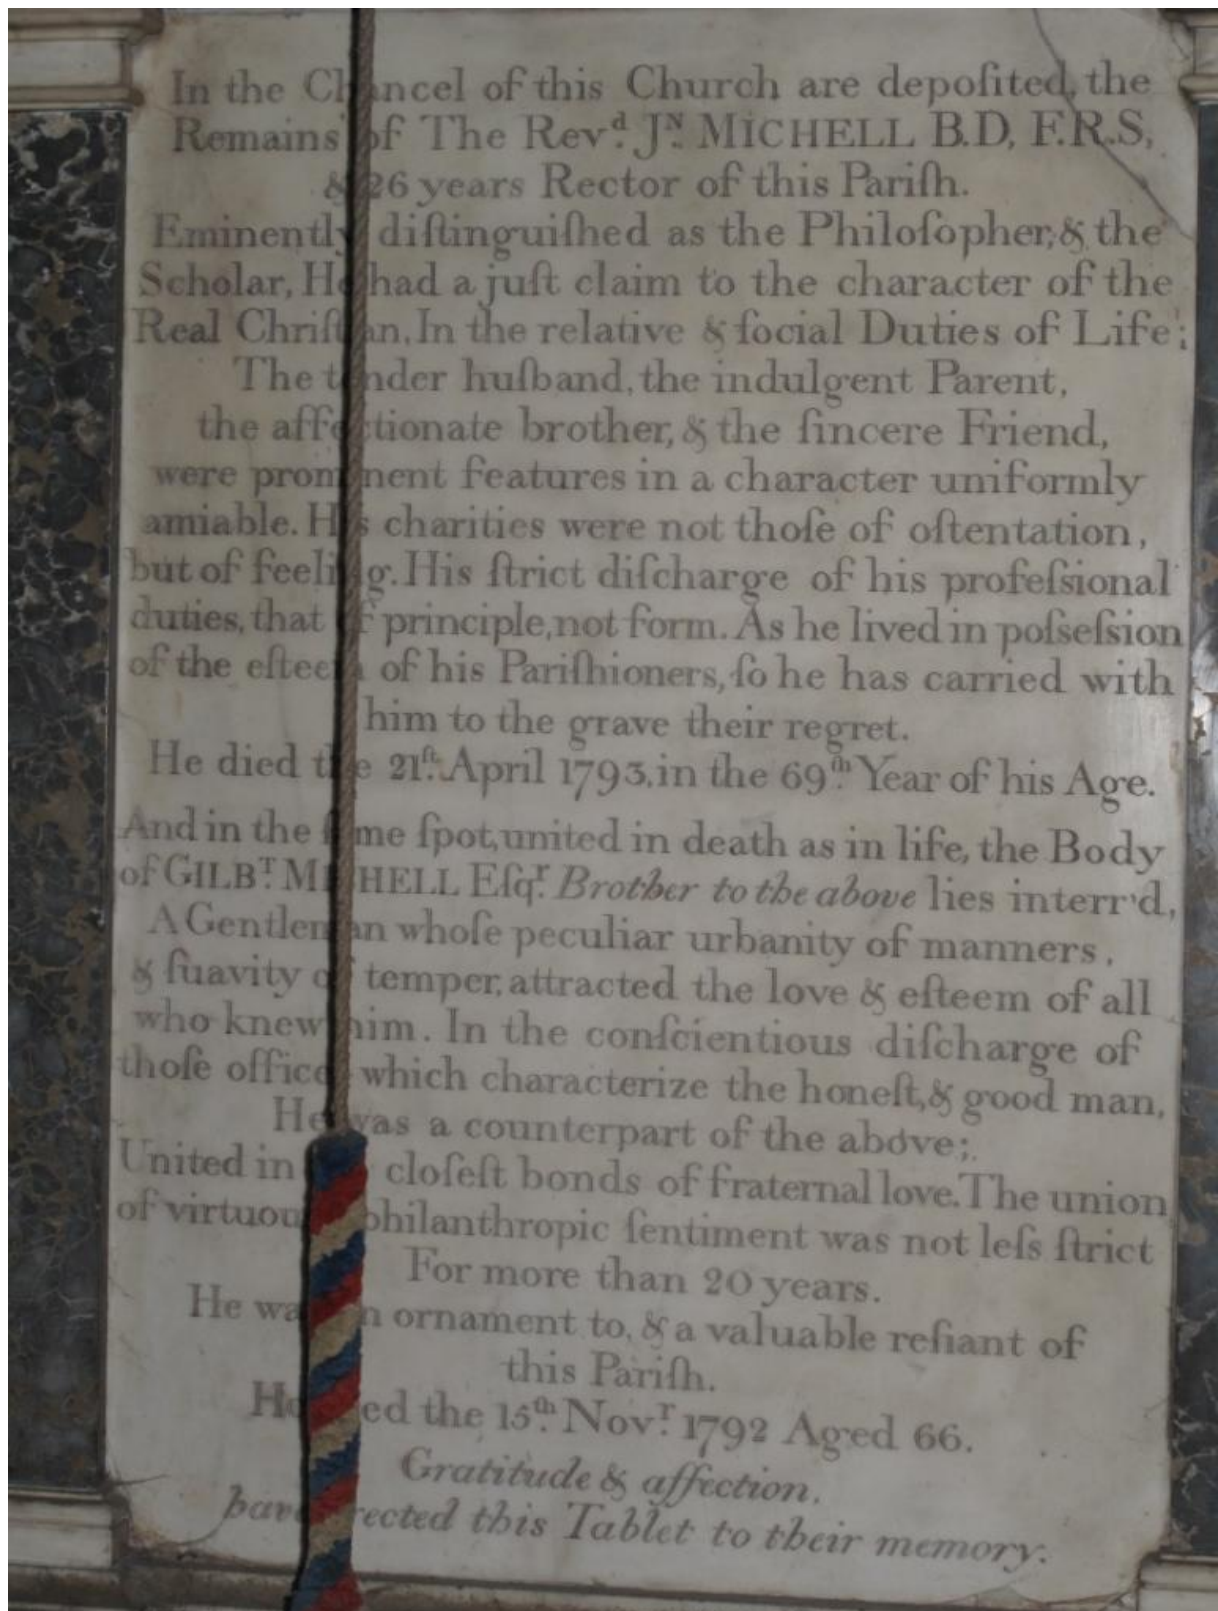 In the Chancel of this Church are depoſited, the
Remains of The Revᵈ. Jᴺ. MICHELL B.D, F.R.S,
& 26 years Rector of this Pariſh.
Eminently diſtinguiſhed as the Philoſopher, & the
Scholar, He had a juſt claim to the character of the
Real Chriſtian, In the relative & ſocial Duties of Life;
The tender huſband, the indulgent Parent,
the affectionate brother, & the ſincere Friend,
were prominent features in a character uniformly
amiable. His charities were not thoſe of oſtentation,
but of feeling. His ſtrict diſcharge of his profeſsional
duties, that of principle, not form. As he lived in poſseſsion
of the eſteem of his Pariſhioners, ſo he has carried with
him to the grave their regret.
He died the 21ſt. April 1793, in the 69th. Year of his Age.
And in the ſame ſpot, united in death as in life, the Body
of GILBᵀ. MICHELL Eſqʳ. Brother to the above lies interr'd,
A Gentleman whoſe peculiar urbanity of manners,
& ſuavity of temper, attracted the love & eſteem of all
who knew him. In the conſcientious diſcharge of
thoſe offices which characterize the honeſt, & good man,
He was a counterpart of the above;
United in cloſeſt bonds of fraternal love. The union
of virtuous philanthropic ſentiment was not leſs ſtrict
For more than 20 years.
He was an ornament to, & a valuable reſiant of
this Pariſh.
He died the 15th. Novʳ. 1792 Aged 66.
Gratitude & affection,
have erected this Tablet to their memory.